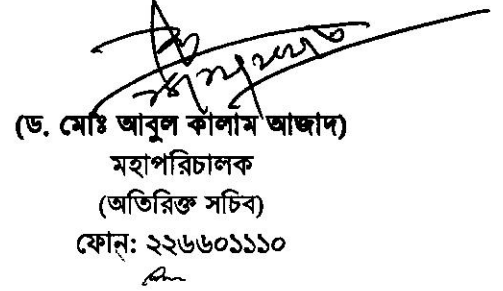 (ড. মোঃ আবুল কালাম আজাদ)
মহাপরিচালক
(অতিরিক্ত সচিব)
ফোন: ২২৬৬০১১১০